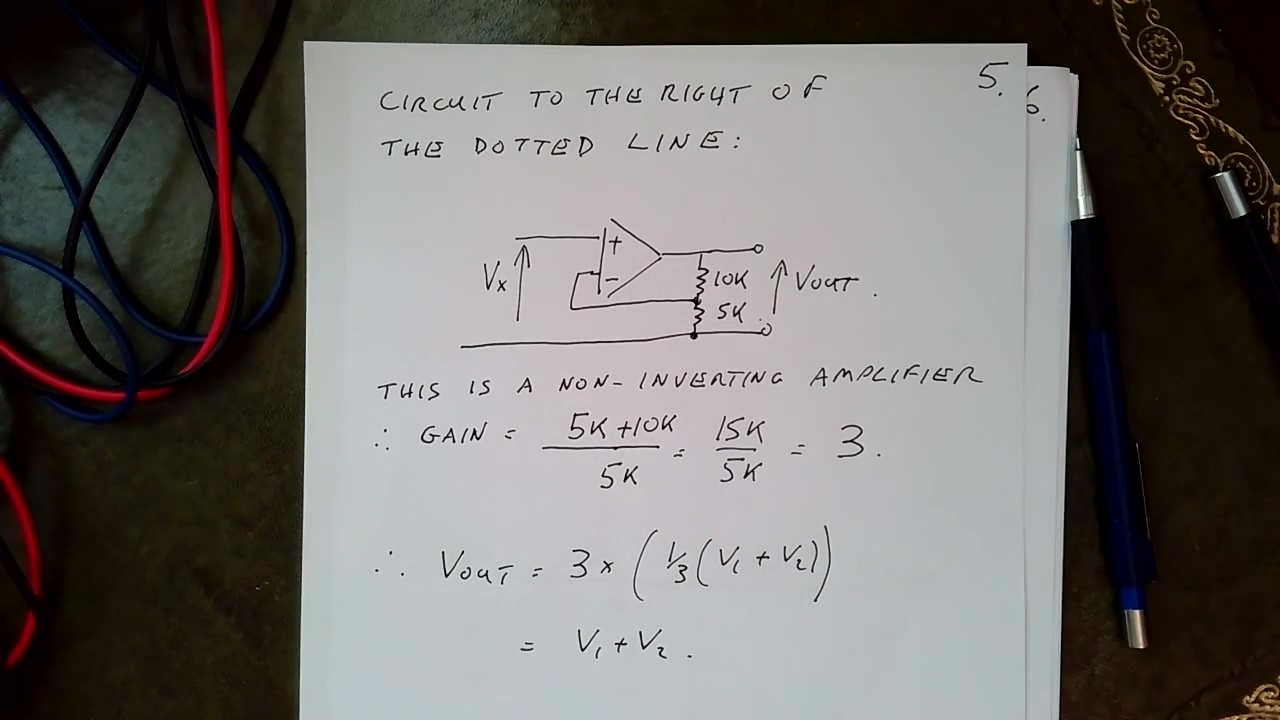 5.
6.
CIRCUIT TO THE RIGHT OF
THE DOTTED LINE:
+
-
Vx
10K
5K
VOUT.
THIS IS A NON-INVERTING AMPLIFIER
∴ GAIN = 5K+10K / 5K = 15K / 5K = 3.
∴ VOUT = 3 × (1/3 (V1 + V2))
= V1 + V2.